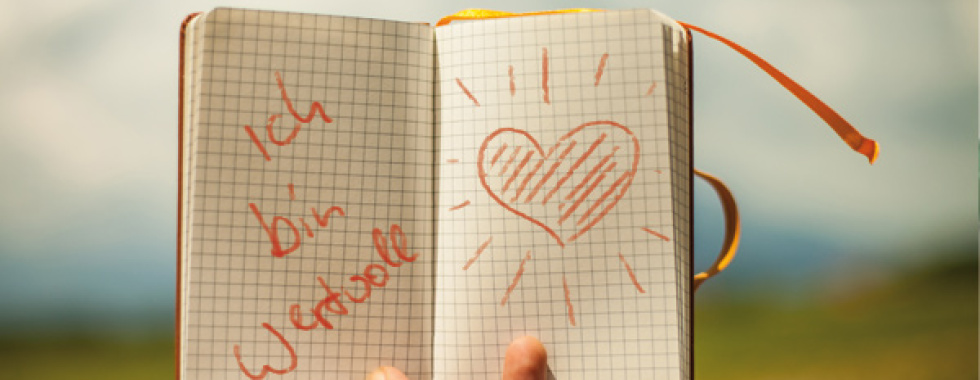 Ich
bin
Wertvoll